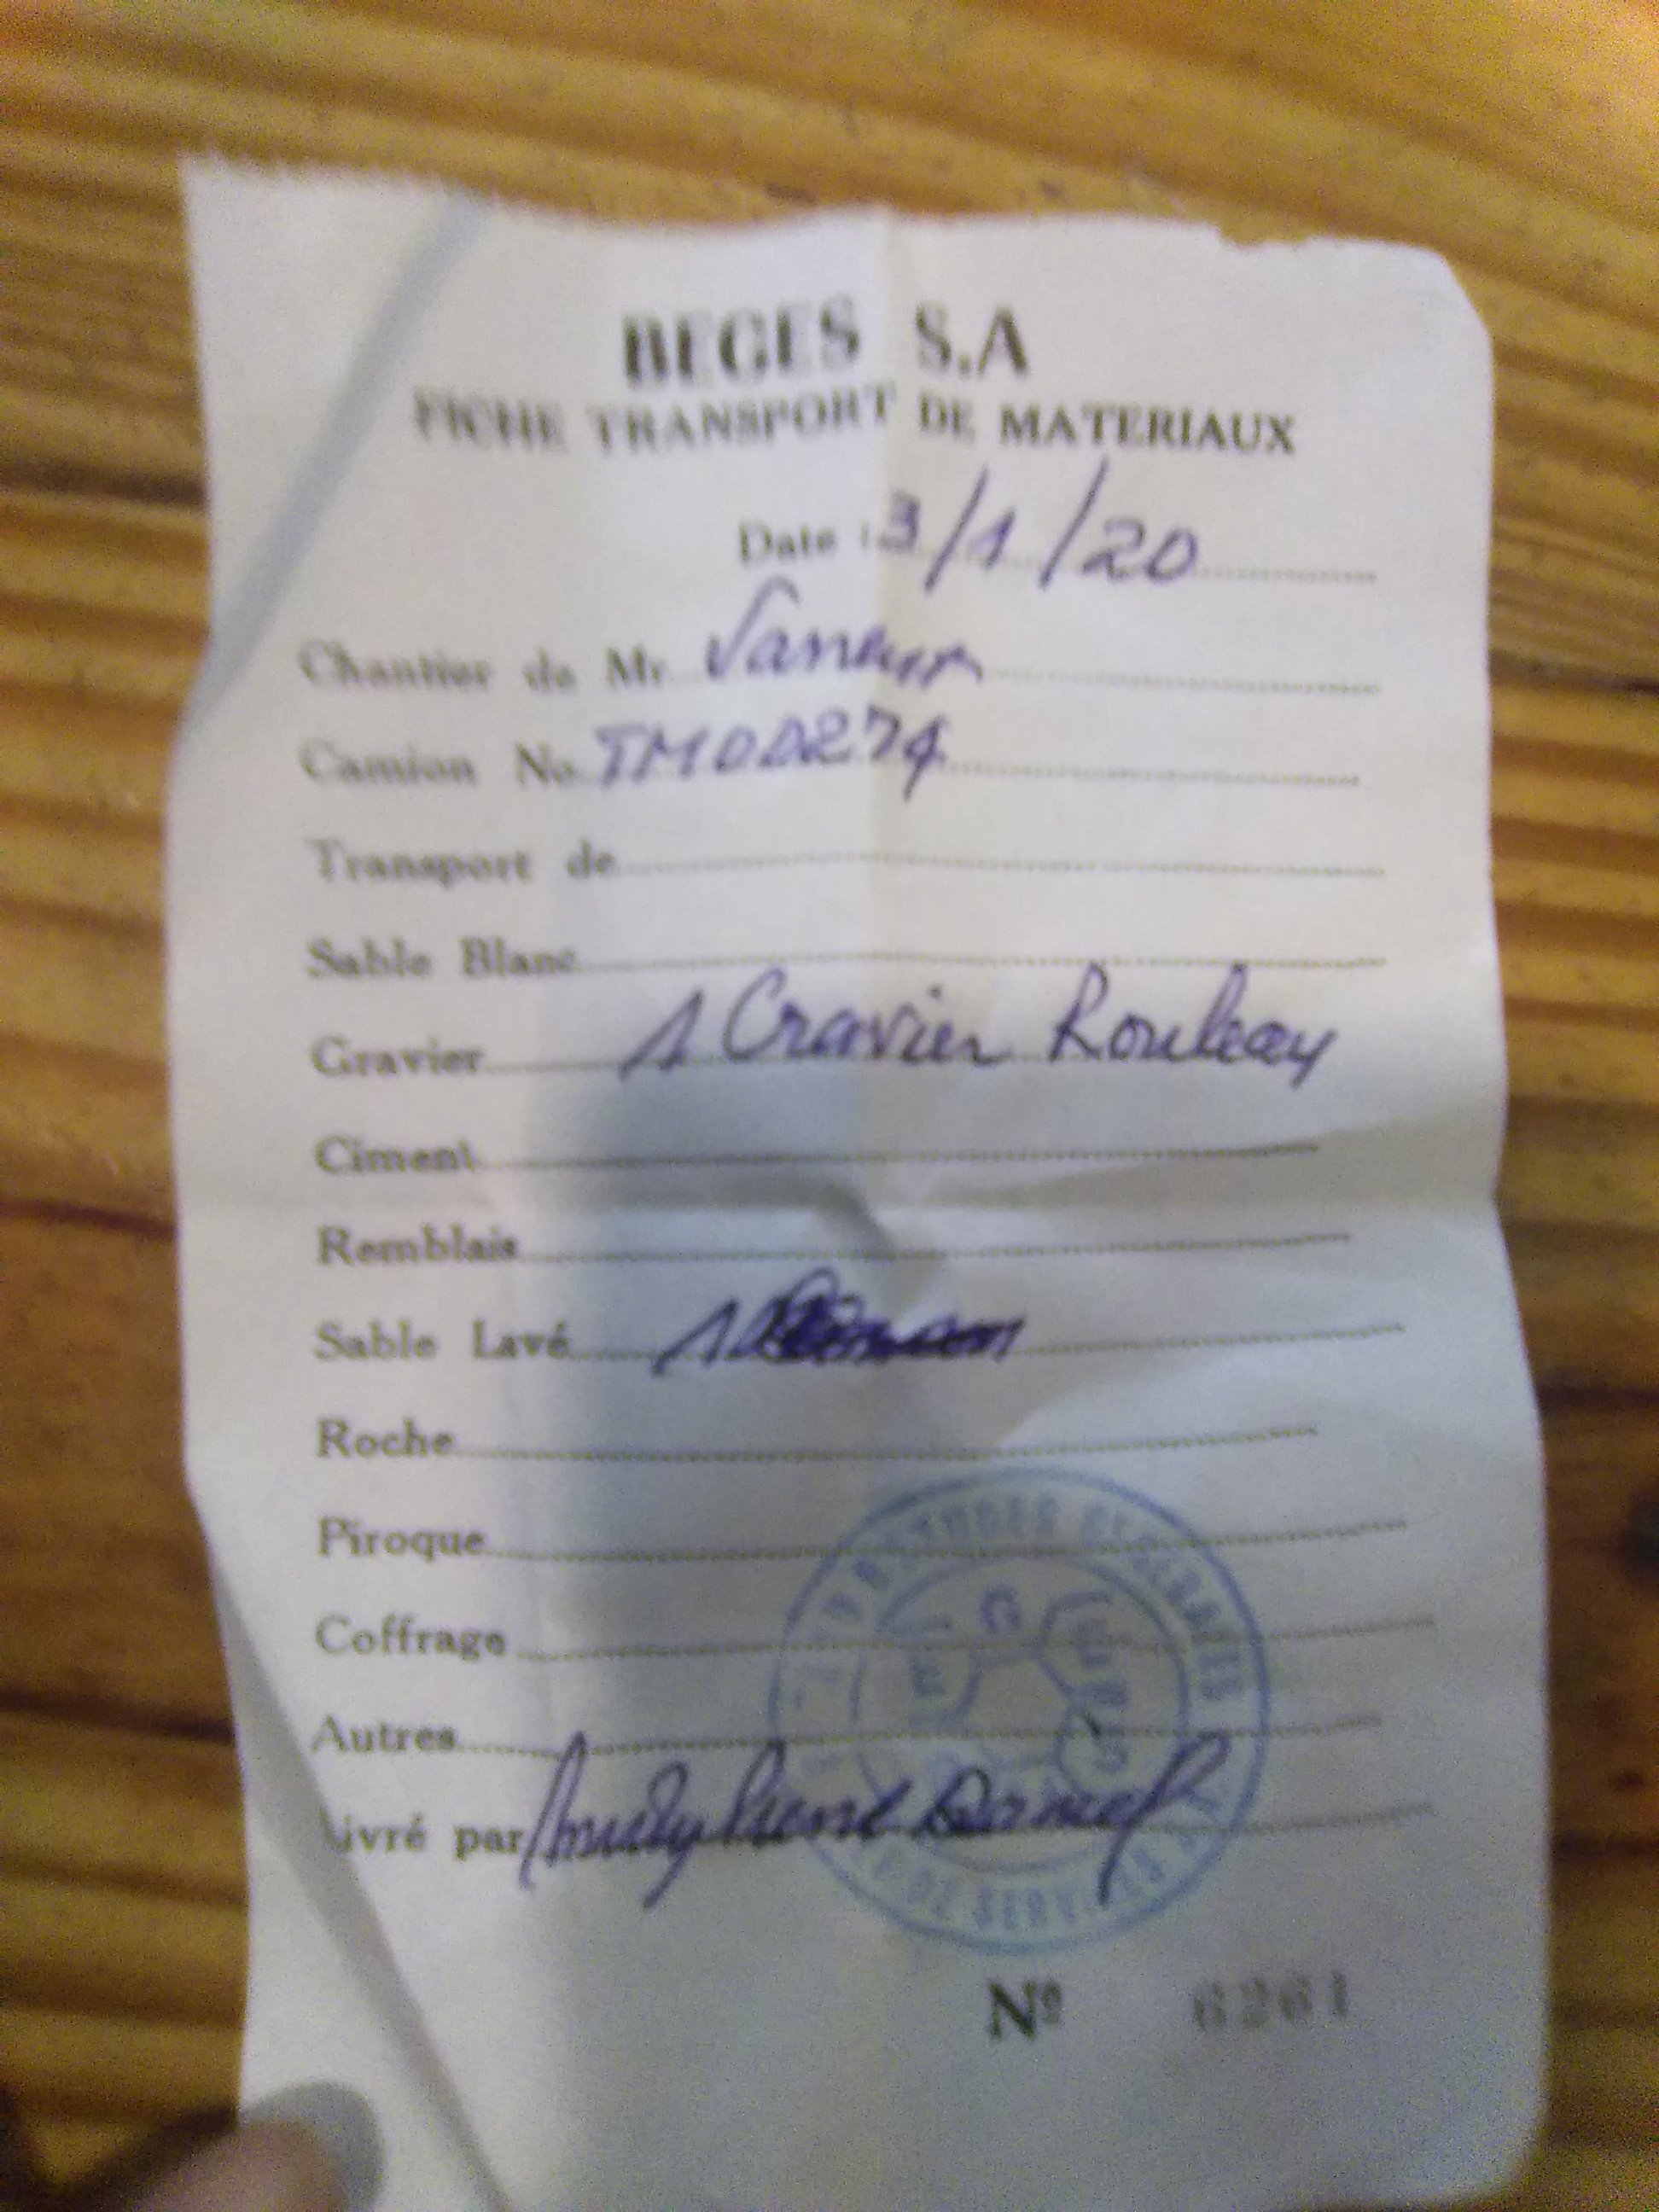 BEGES S.A
FICHE TRANSPORT DE MATERIAUX
Date : 3/1/20
Chantier de Mr
Camion No.
Transport de
Sable Blanc
Gravier 1 Gravier Rouleau
Ciment
Remblais
Sable Lavé 1
Roche
Piroque
Coffrage
Autres
ivré par Pierre
ETUDES GENERALES
SERVICES S.A
Nº 6261